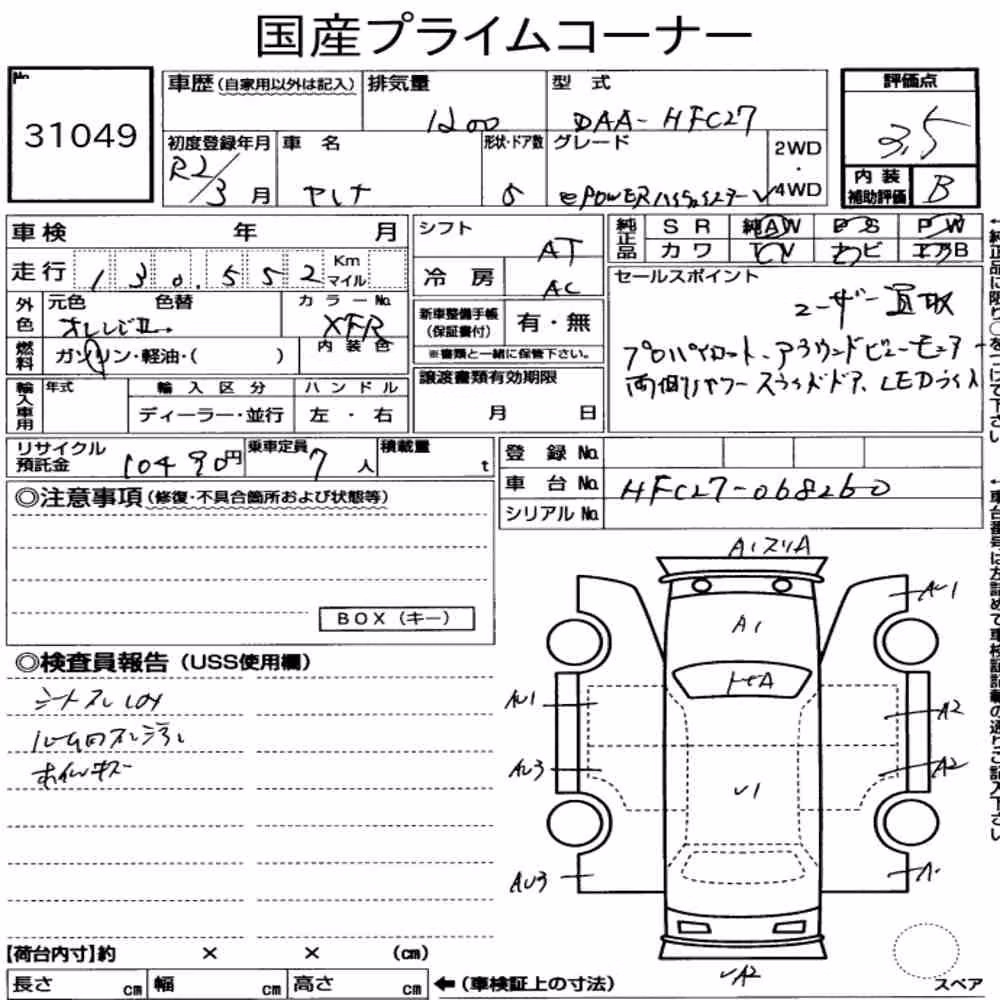 国産プライムコーナー
No.
31049
車歴(自家用以外は記入)
排気量
1200
型 式
DAA-HFC27
評価点
3.5
内装補助評価
B
初度登録年月
R2/3月
車 名
セレナ
形状・ドア数
5
グレード
e POWERハイウェイスターV
2WD
・
4WD
車検 年 月
走行 130,552 Km マイル
外色
元色 色替
オレンジⅡ
カラーNo.
XFR
燃料
ガソリン・軽油・( )
内装色
輸入車用
年式
輸入区分
ディーラー・並行
ハンドル
左・右
シフト
AT
冷房
AC
新車整備手帳(保証書付)
有・無
※書類と一緒に保管下さい。
譲渡書類有効期限
月 日
純正品
SR 純AW PS PW
カワ TV ナビ エアB
セールスポイント
ユーザー買取
プロパイロット、アラウンドビューモニター
両側パワースライドドア、LEDライト
←純正品に限り○をつけて下さい
リサイクル預託金
10490円
乗車定員
7人
積載量
t
登録No.
車台No.
HFC27-068260
シリアルNo.
◎注意事項(修復・不具合箇所および状態等)
BOX(キー)
◎検査員報告(USS使用欄)
シートスレ
ルーム内スレ汚レ
ホイルキズ
A1スリA
A1
AU1
AU1
A2
AU3
A2
U1
AU3
UA2
スペア
←車台番号は左詰めで車検証記載の通りご記入下さい
【荷台内寸】約 × × (cm)
長さ cm
幅 cm
高さ cm
←(車検証上の寸法)